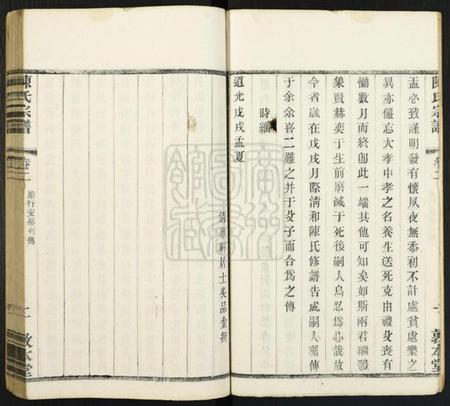 陳氏宗譜
卷二
敦本堂
盂必致謹明發有懷夙夜無忝初不計處貧處樂之
異亦儼忘大孝中孝之名養生送死克由禮殳喪有
慟數月而終卽此一端其他可知矣如斯兩君
象賢赫奕于生前磨滅于死後嗣人烏忍為心哉故
今者歲在戊戌月際清和陳氏修譜告成嗣人囑傳
于余余喜二難之并于殳子而合為之傳
時維
道光戊戌孟夏
清華軒居士吳品金撰
陳氏宗譜
卷二
傳
二
敦本堂